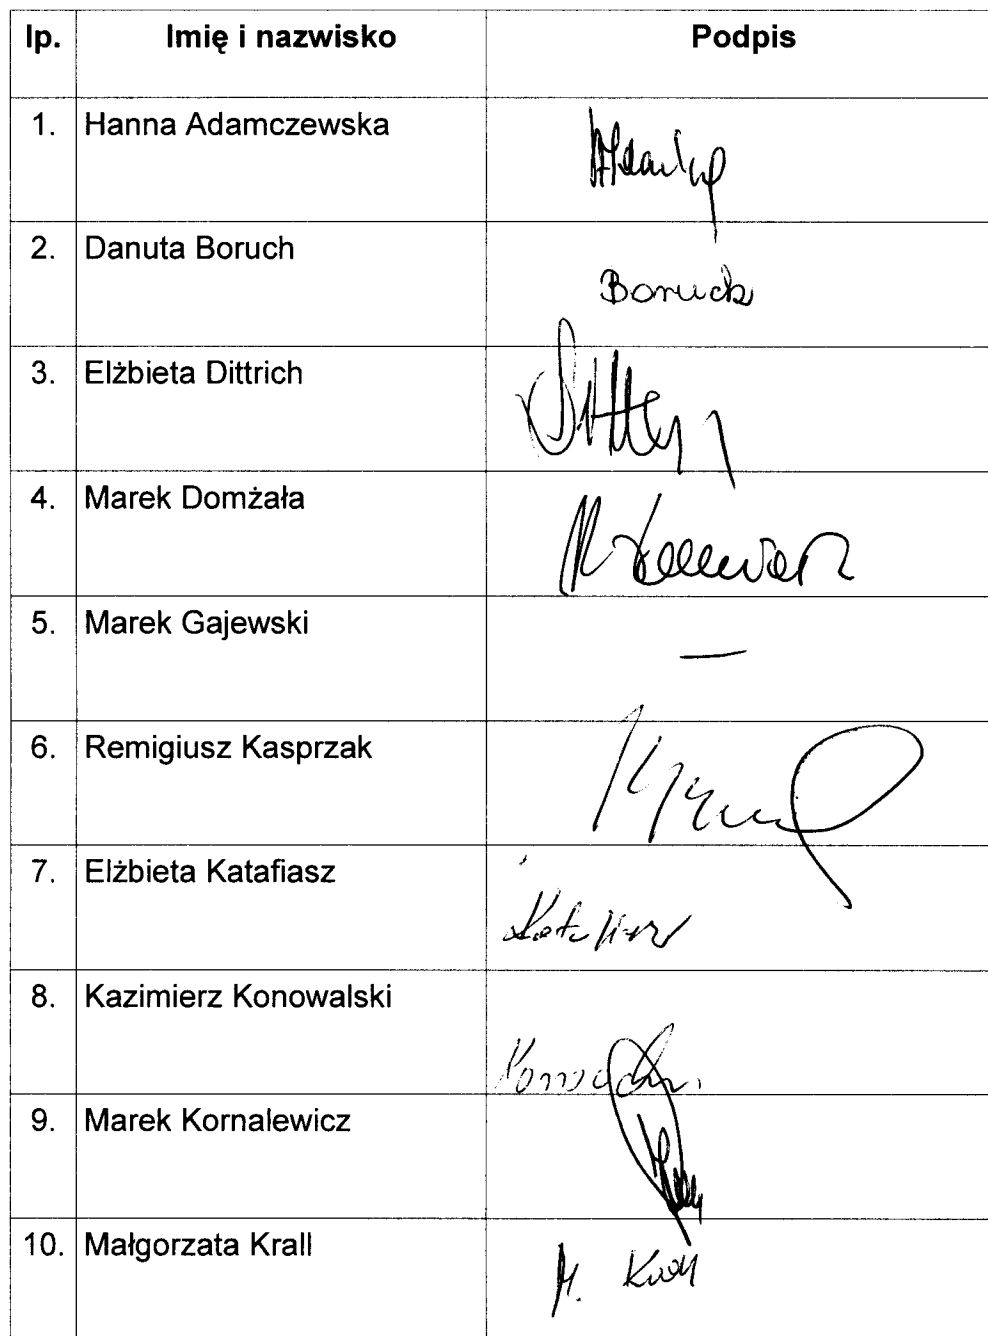 lp. Imię i nazwisko Podpis
1. Hanna Adamczewska
2. Danuta Boruch
Boruch
3. Elżbieta Dittrich
4. Marek Domżała
5. Marek Gajewski
—
6. Remigiusz Kasprzak
7. Elżbieta Katafiasz
8. Kazimierz Konowalski
9. Marek Kornalewicz
10. Małgorzata Krall
M. Krall